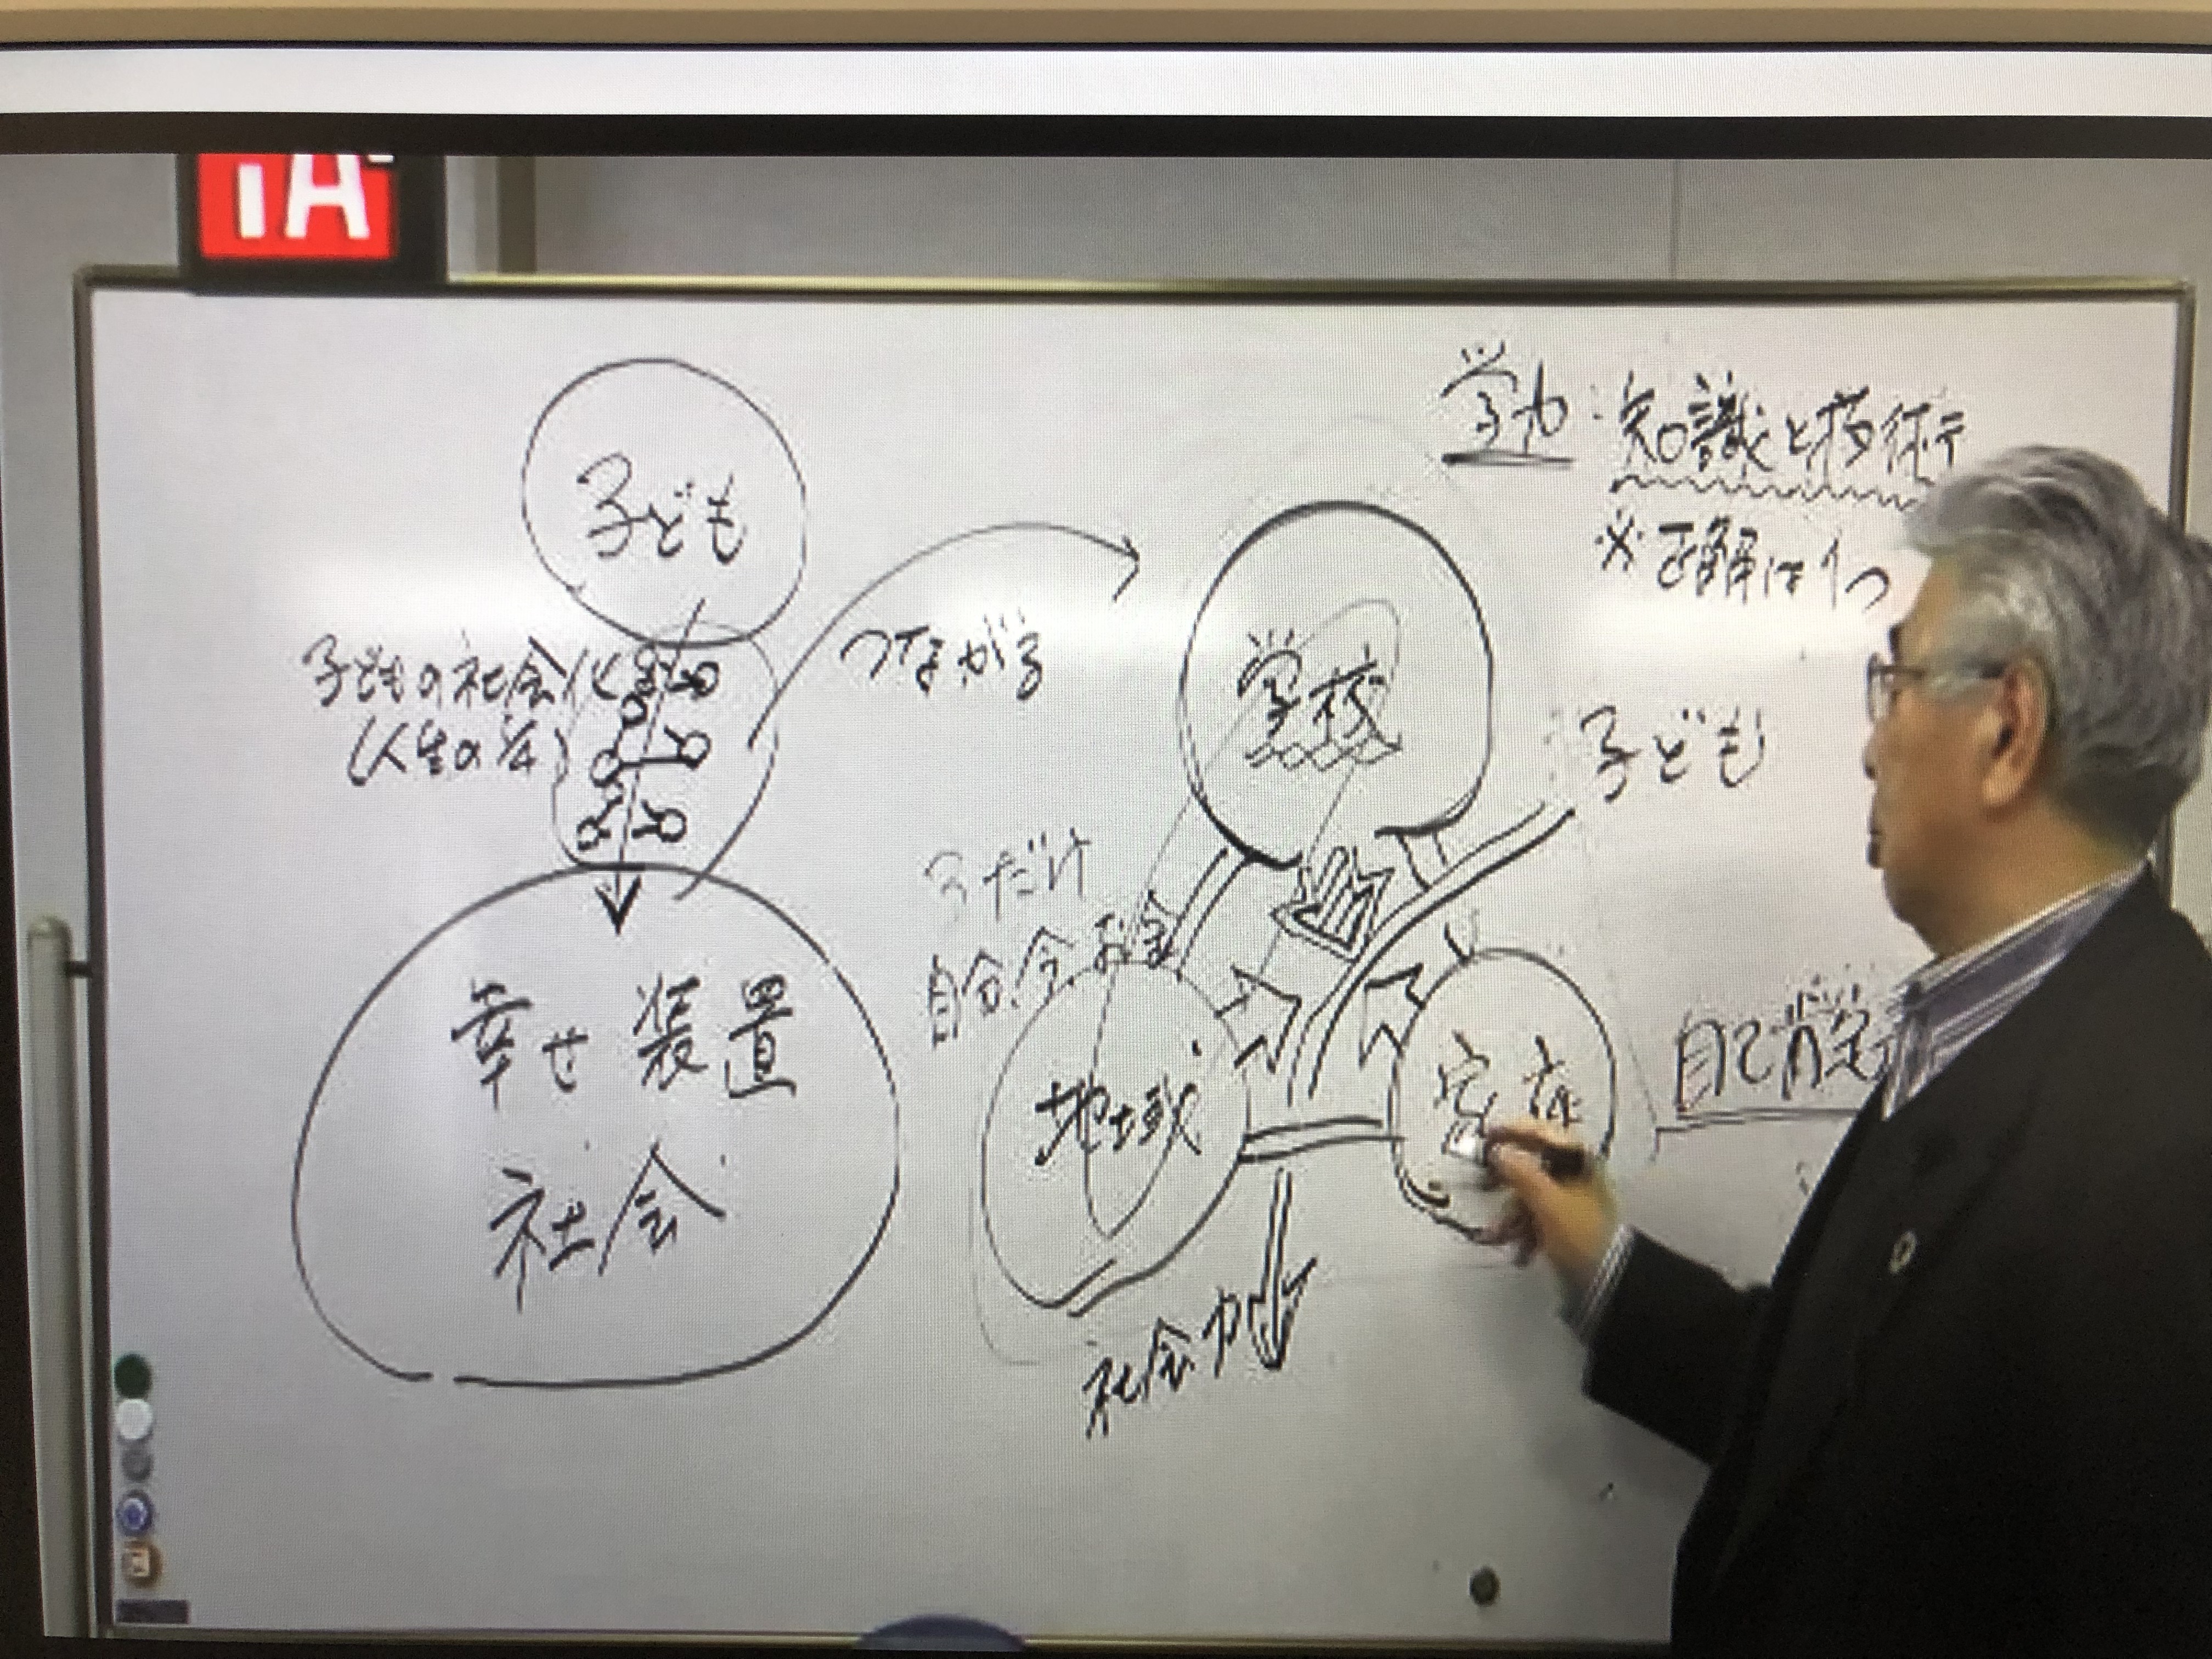 1A
学力:知識と技術
※正解は1つ
子ども
子どもの社会化
(人生の
つながる
学校
子ども
3だけ
自分、今、お金
幸せ装置
社会
地域
家族
自己肯定
社会力